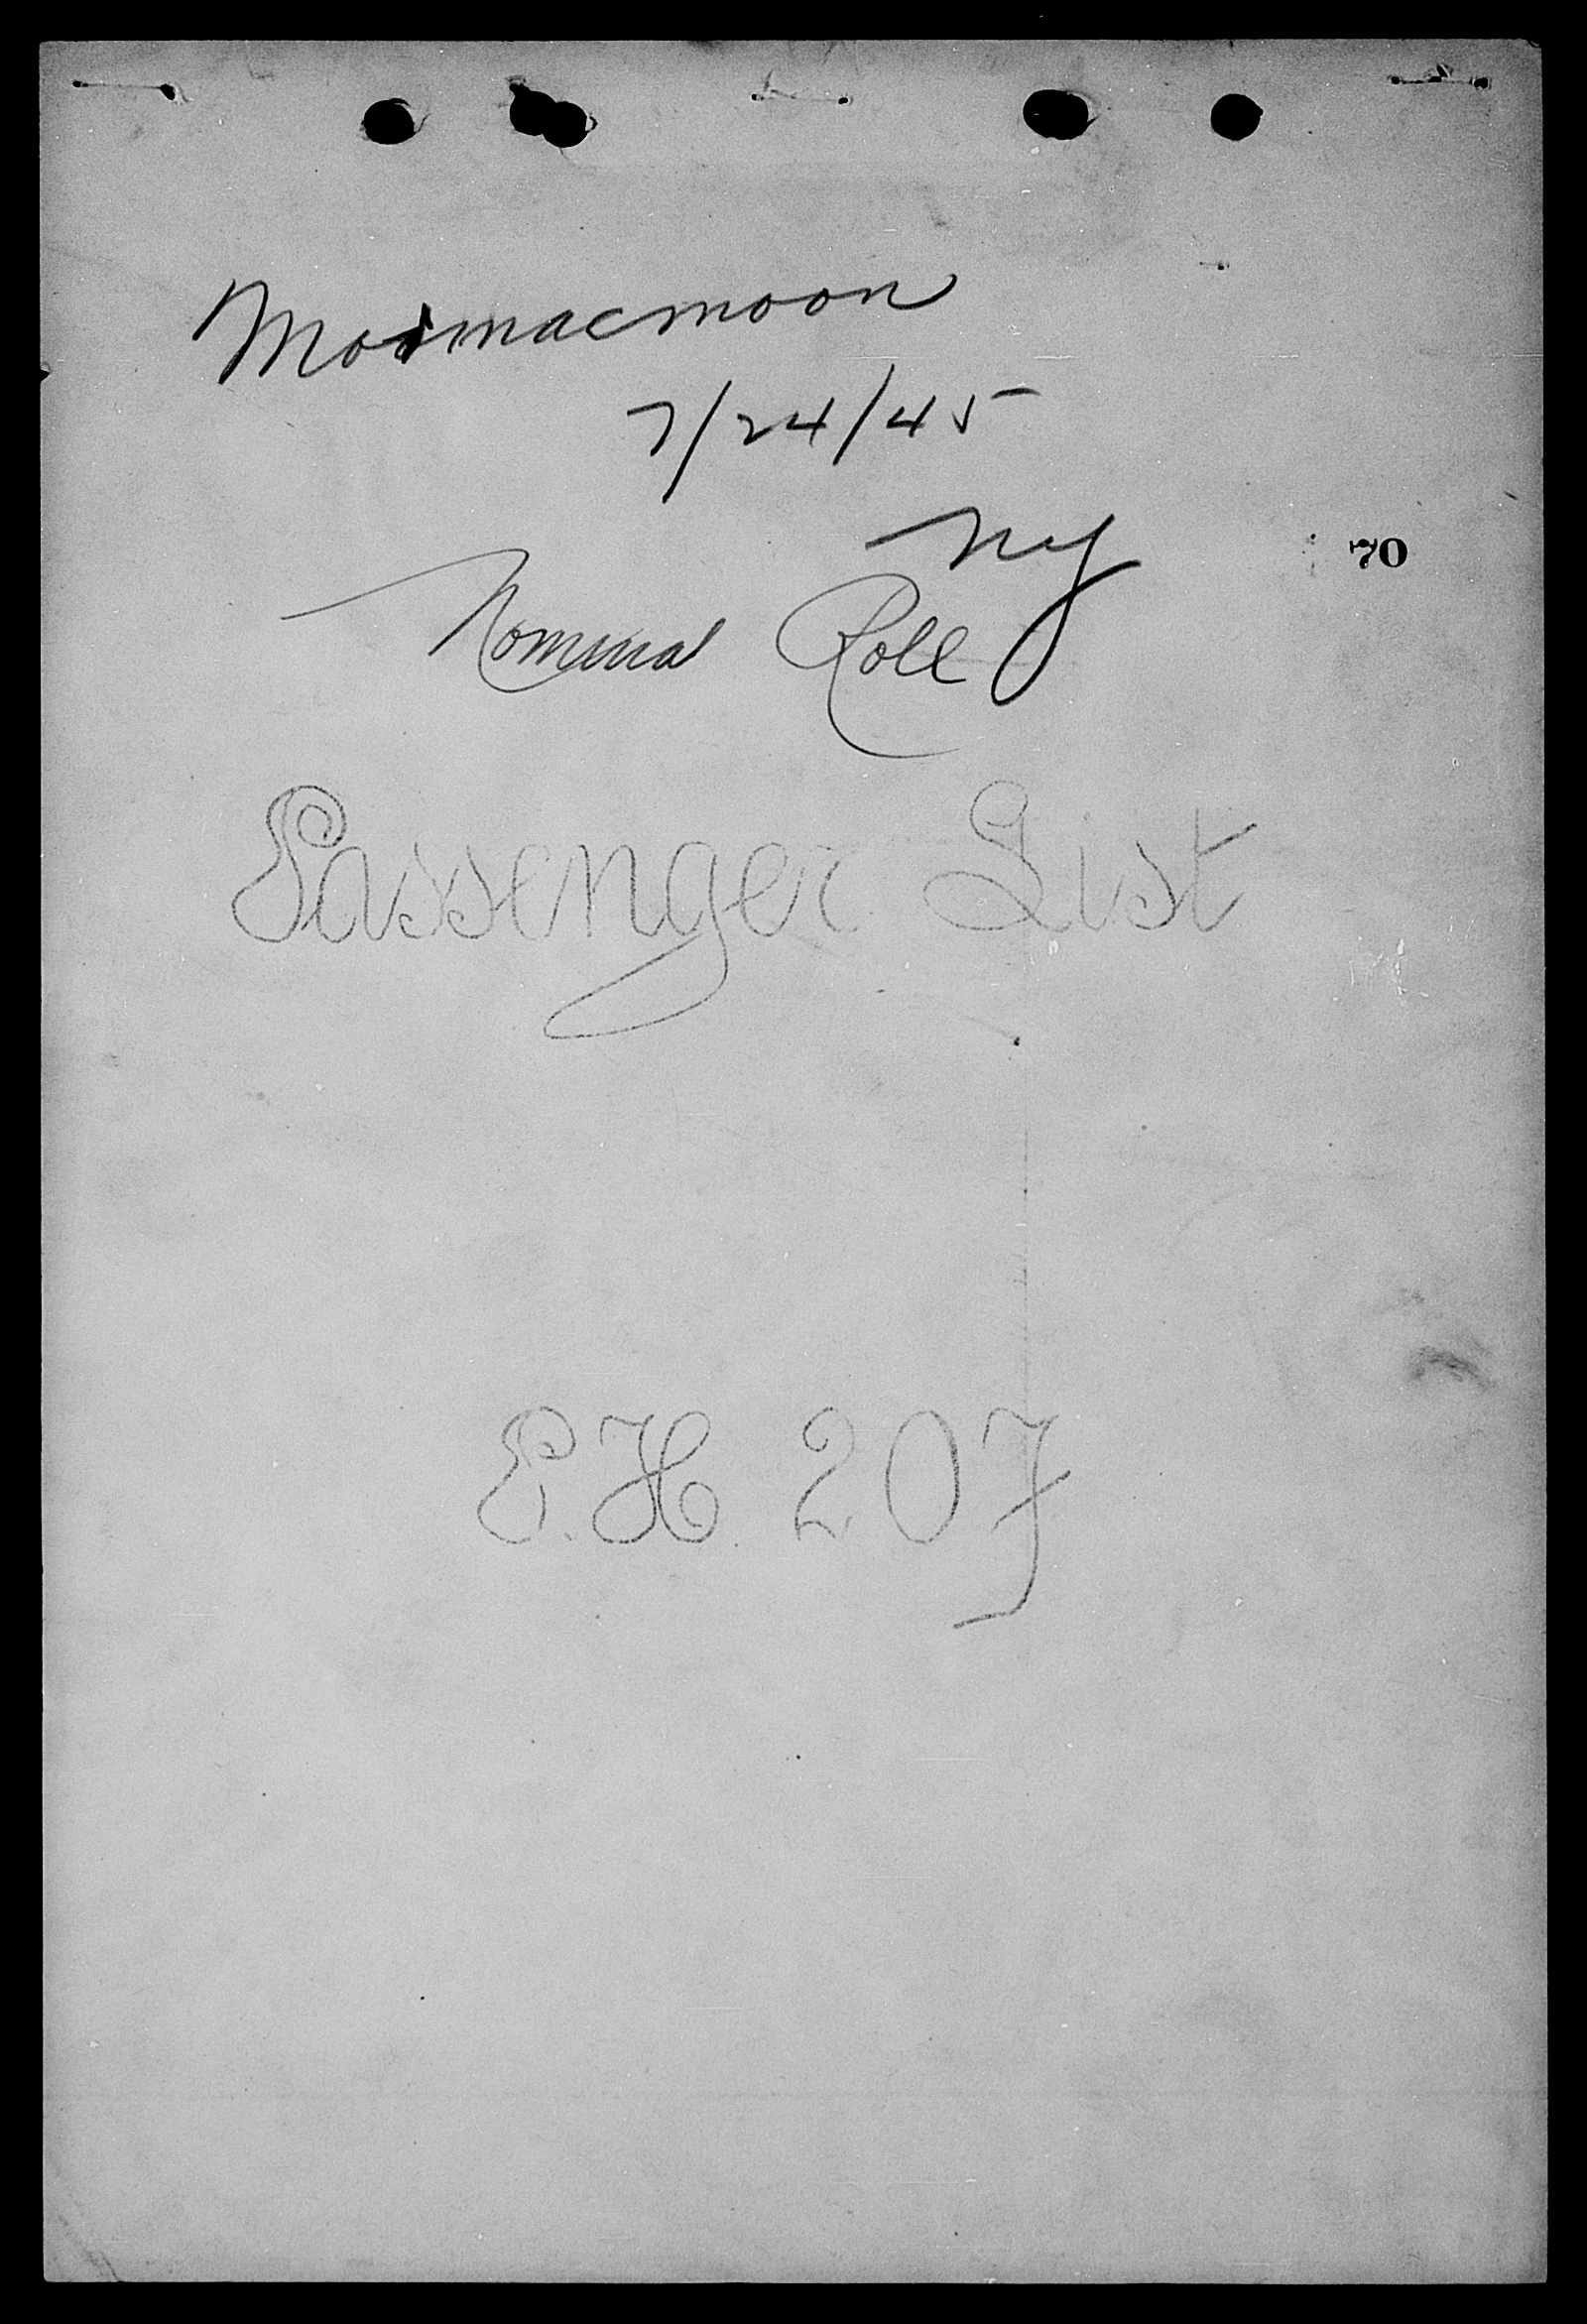 Mormacmoon
7/24/45
NY
70
Nominal Roll
Passenger List
E.H. 207